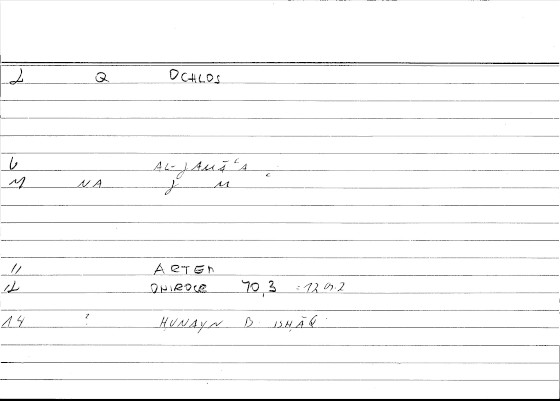 2 Q OCHLOS
6 AL-JAMĀʿA
M NA J M
11 ARTEM
12 ONIROCR 70,3 =12
14 ? ḤUNAYN B ISḤĀQ